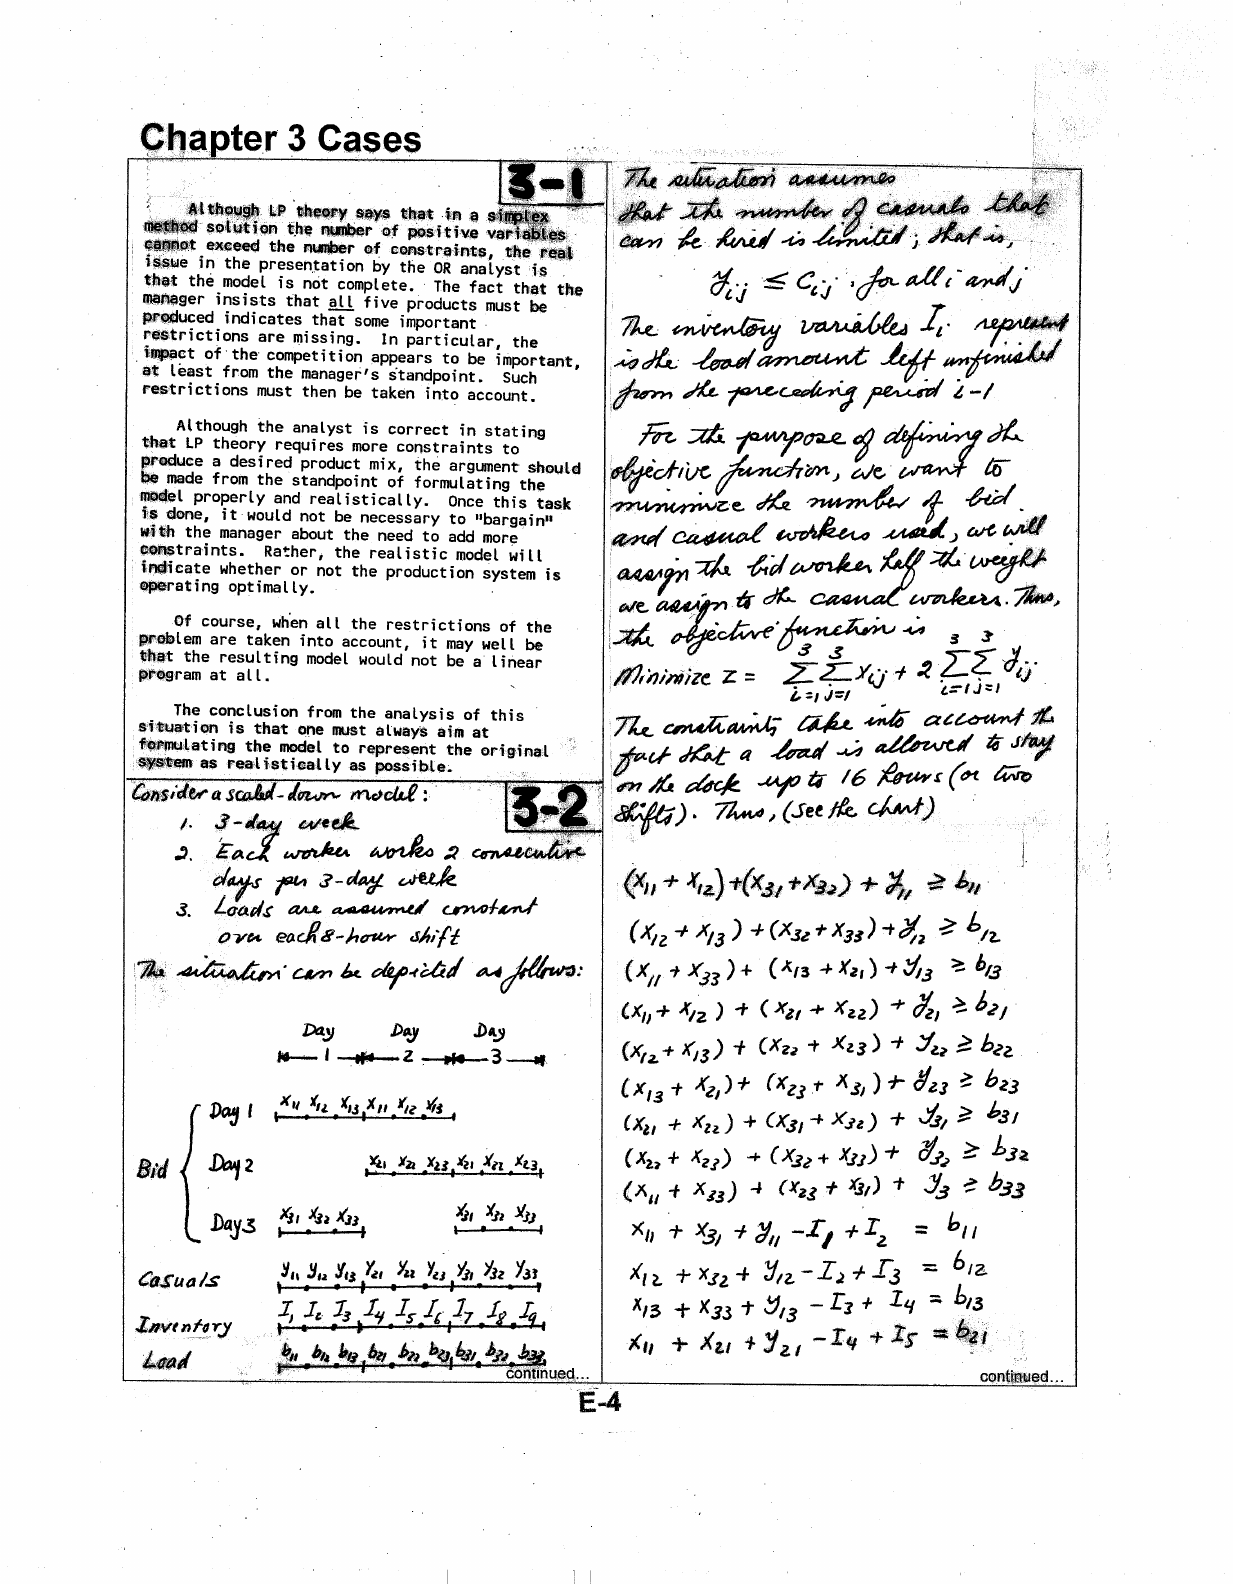 Chapter 3 Cases
3-1
Although LP theory says that in a simplex
method solution the number of positive variables
cannot exceed the number of constraints, the real
issue in the presentation by the OR analyst is
that the model is not complete. The fact that the
manager insists that all five products must be
produced indicates that some important
restrictions are missing. In particular, the
impact of the competition appears to be important,
at least from the manager's standpoint. Such
restrictions must then be taken into account.
Although the analyst is correct in stating
that LP theory requires more constraints to
produce a desired product mix, the argument should
be made from the standpoint of formulating the
model properly and realistically. Once this task
is done, it would not be necessary to "bargain"
with the manager about the need to add more
constraints. Rather, the realistic model will
indicate whether or not the production system is
operating optimally.
Of course, when all the restrictions of the
problem are taken into account, it may well be
that the resulting model would not be a linear
program at all.
The conclusion from the analysis of this
situation is that one must always aim at
formulating the model to represent the original
system as realistically as possible.
3-2
Consider a scaled-down model:
1. 3-day week
2. Each worker works 2 consecutive
days per 3-day week
3. Loads are assumed constant
over each 8-hour shift
The situation can be depicted as follows:
Day Day Day
1 2 3
Bid
Day 1 x11 x12 x13 x11 x12 x13
Day 2 x21 x22 x23 x21 x22 x23
Day 3 x31 x32 x33 x31 x32 x33
Casuals y11 y12 y13 y21 y22 y23 y31 y32 y33
Inventory I1 I2 I3 I4 I5 I6 I7 I8 I9
Load b11 b12 b13 b21 b22 b23 b31 b32 b33
continued...
The situation assumes
that the number of casuals that
can be hired is limited; that is,
yij ≤ Cij, for all i and j
The inventory variables Ii represent
is the load amount left unfinished
from the preceding period i-1
For the purpose of defining the
objective function, we want to
minimize the number of bid
and casual workers used, we will
assign the bid worker half the weight
we assign to the casual workers. Thus,
the objective function is
Minimize z = 3∑i=1 3∑j=1 xij + 2 3∑i=1 3∑j=1 yij
The constraints take into account the
fact that a load is allowed to stay
on the dock up to 16 hours (or two
shifts). Thus, (see the chart)
(x11 + x12) + (x31 + x32) + y11 ≥ b11
(x12 + x13) + (x32 + x33) + y12 ≥ b12
(x11 + x33) + (x13 + x21) + y13 ≥ b13
(x11 + x12) + (x21 + x22) + y21 ≥ b21
(x12 + x13) + (x22 + x23) + y22 ≥ b22
(x13 + x21) + (x23 + x31) + y23 ≥ b23
(x21 + x22) + (x31 + x32) + y31 ≥ b31
(x22 + x23) + (x32 + x33) + y32 ≥ b32
(x11 + x33) + (x23 + x31) + y3 ≥ b33
x11 + x31 + y11 - I1 + I2 = b11
x12 + x32 + y12 - I2 + I3 = b12
x13 + x33 + y13 - I3 + I4 = b13
x11 + x21 + y21 - I4 + I5 = b21
continued...
E-4